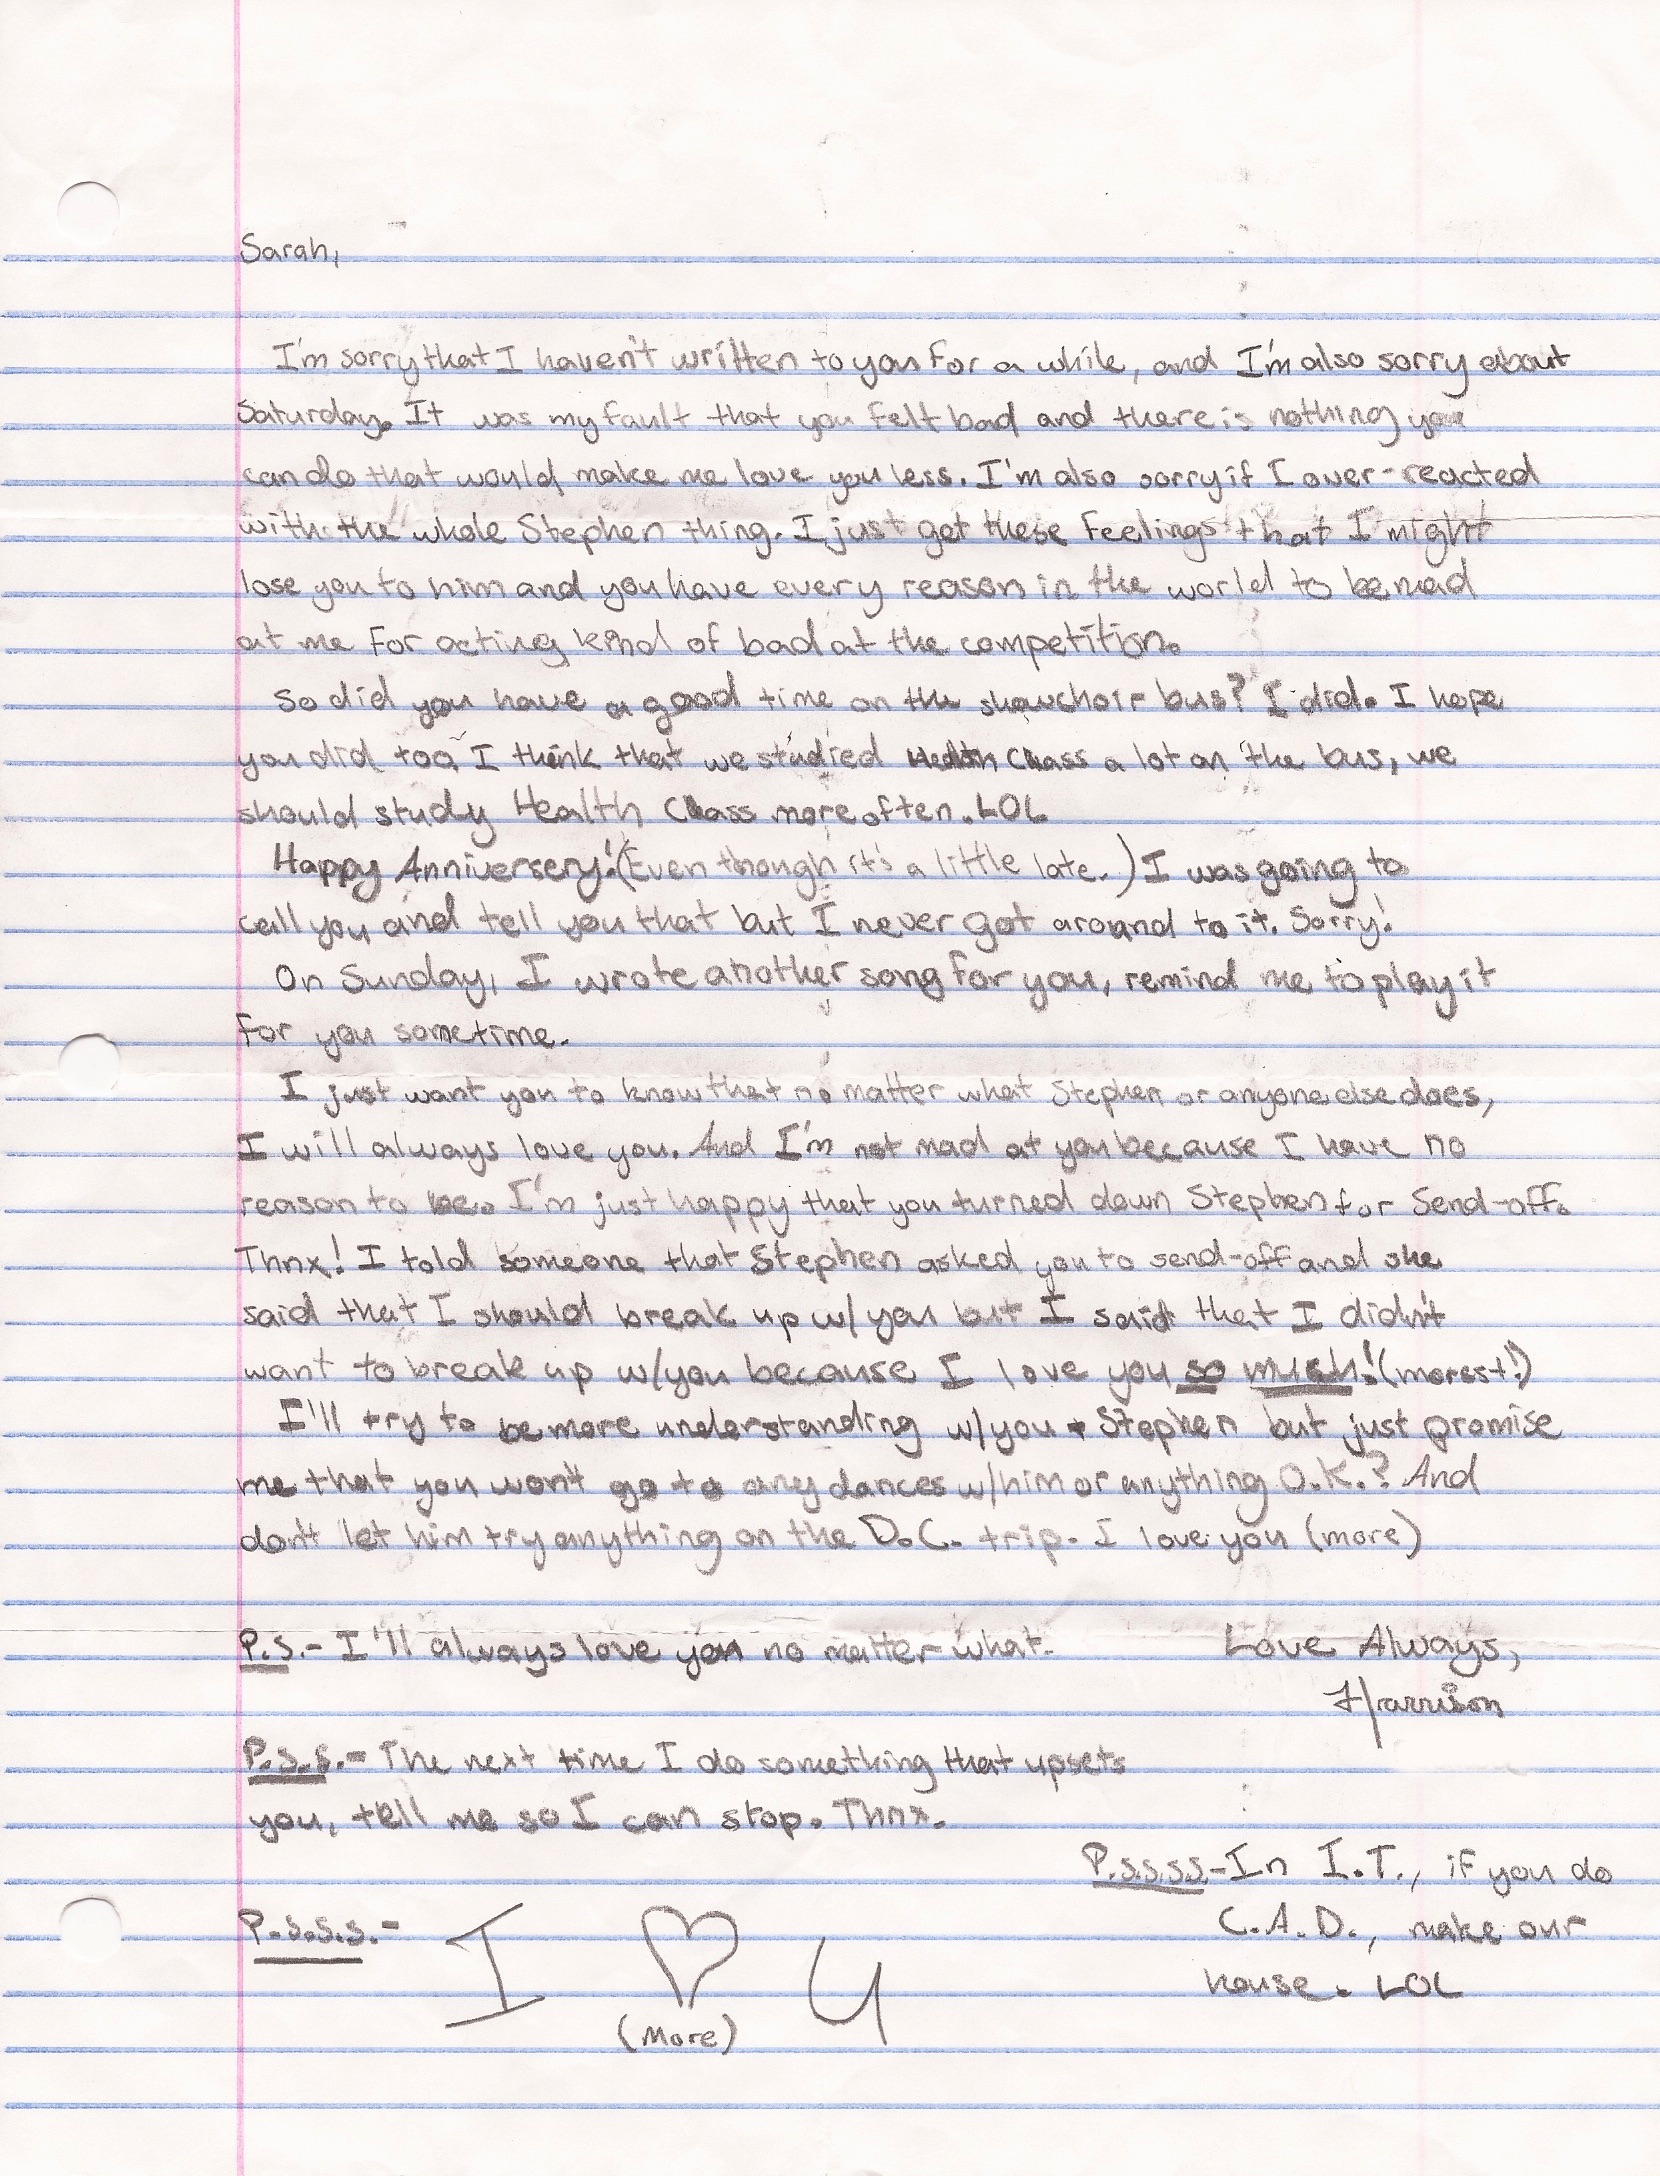 Sarah,
I'm sorry that I haven't written to you for a while, and I'm also sorry about
Saturday. It was my fault that you felt bad and there is nothing you
can do that would make me love you less. I'm also sorry if I over-reacted
with the whole Stephen thing. I just get these feelings that I might
lose you to him and you have every reason in the world to be mad
at me for acting kind of bad at the competition.
So did you have a good time on the showchoir bus? I did. I hope
you did too. I think that we studied Health Class a lot on the bus, we
should study Health Class more often. LOL
Happy Anniversery! (Even though it's a little late.) I was going to
call you and tell you that but I never got around to it. Sorry!
On Sunday, I wrote another song for you, remind me to play it
for you sometime.
I just want you to know that no matter what Stephen or anyone else does,
I will always love you. And I'm not mad at you because I have no
reason to be. I'm just happy that you turned down Stephen for Send-off.
Thnx! I told someone that Stephen asked you to send-off and she
said that I should break up w/you but I said that I didn't
want to break up w/you because I love you so much! (morest!)
I'll try to be more understanding w/you + Stephen but just promise
me that you won't go to any dances w/him or anything O.K.? And
don't let him try anything on the D.C. trip. I love you (more)
P.S.- I'll always love you no matter what.
Love Always,
Harrison
P.S.S.- The next time I do something that upsets
you, tell me so I can stop. Thnx.
P.S.S.S.-
I ♡ U
(More)
P.S.S.S.S.-In I.T., if you do
C.A.D., make our
house. LOL